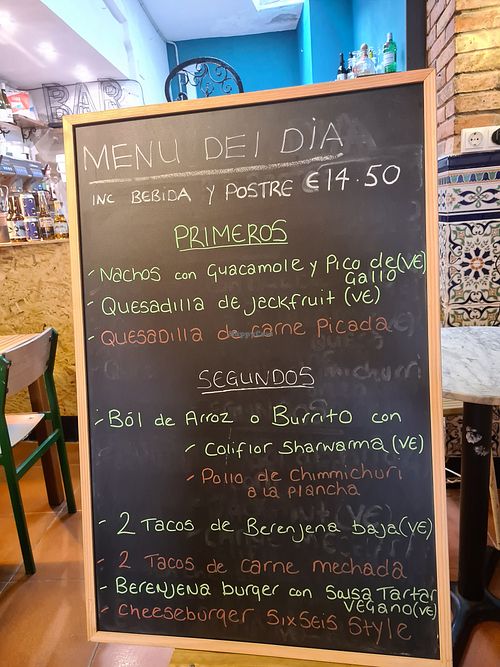 BAR
MENU DEL DIA
INC BEBIDA Y POSTRE €14.50
PRIMEROS
- Nachos con Guacamole y Pico de (VE)
Gallo
- Quesadilla de Jackfruit (VE)
- Quesadilla de carne Picada
SEGUNDOS
- Ból de Arroz o Burrito con
- Coliflor Sharwarma (VE)
- Pollo de Chimmichuri
a la plancha
- 2 Tacos de Berenjena baja (VE)
- 2 Tacos de carne mechada
- Berenjena burger con Salsa Tartar
VEGANO (VE)
- Cheeseburger SixSeis Style